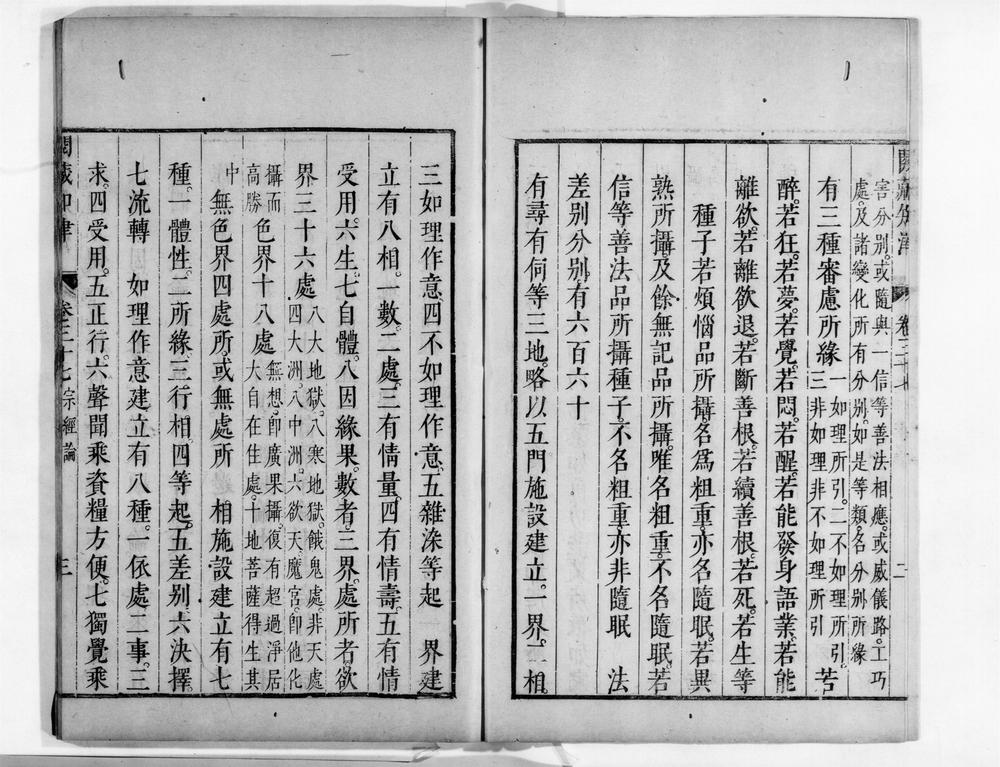 閱藏知津 卷三十七 二
害分別。或隨與一信等善法相應。或威儀路。工巧
處。及諸變化所有分別。如是等類。名分別所緣
有三種審慮所緣 一如理所引。二不如理所引。
三非如理非不如理所引 若
醉。若狂。若夢。若覺。若悶。若醒。若能發身語業。若能
離欲。若離欲退。若斷善根。若續善根。若死。若生等
種子若煩惱品所攝。名為粗重。亦名隨眠。若異
熟所攝。及餘無記品所攝。唯名粗重。不名隨眠。若
信等善法品所攝種子。不名粗重。亦非隨眠 法
差別分別。有六百六十
有尋有伺等三地。略以五門施設建立。一界。二相。
三如理作意。四不如理作意。五雜染等起 界建
立有八相。一數。二處。三有情量。四有情壽。五有情
受用。六生。七自體。八因緣果。數者。三界。處所者。欲
界三十六處 八大地獄。八寒地獄。餓鬼處。非天處
四大洲。八中洲。六欲天。魔宮。即他化
攝而
高勝 色界十八處 無想。即廣果攝。復有超過淨居
大自在住處。十地菩薩得生其
中 無色界四處所。或無處所 相施設建立有七
種。一體性。二所緣。三行相。四等起。五差別。六決擇。
七流轉 如理作意建立有八種。一依處。二事。三
求。四受用。五正行。六聲聞乘資糧方便。七獨覺乘
閱藏知津 卷三十七 宗經論 三